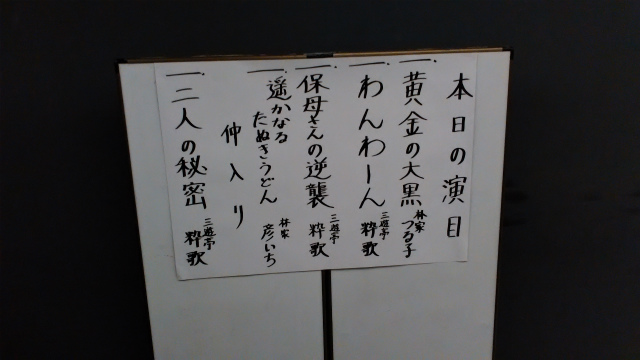 本日の演目
一. 黄金の大黒 林家 つる子
一. わんわーん 三遊亭 粋歌
一. 保母さんの逆襲 三遊亭 粋歌
一. 遥かなる
たぬきうどん 林家 彦いち
仲入り
一. 二人の秘密 三遊亭 粋歌